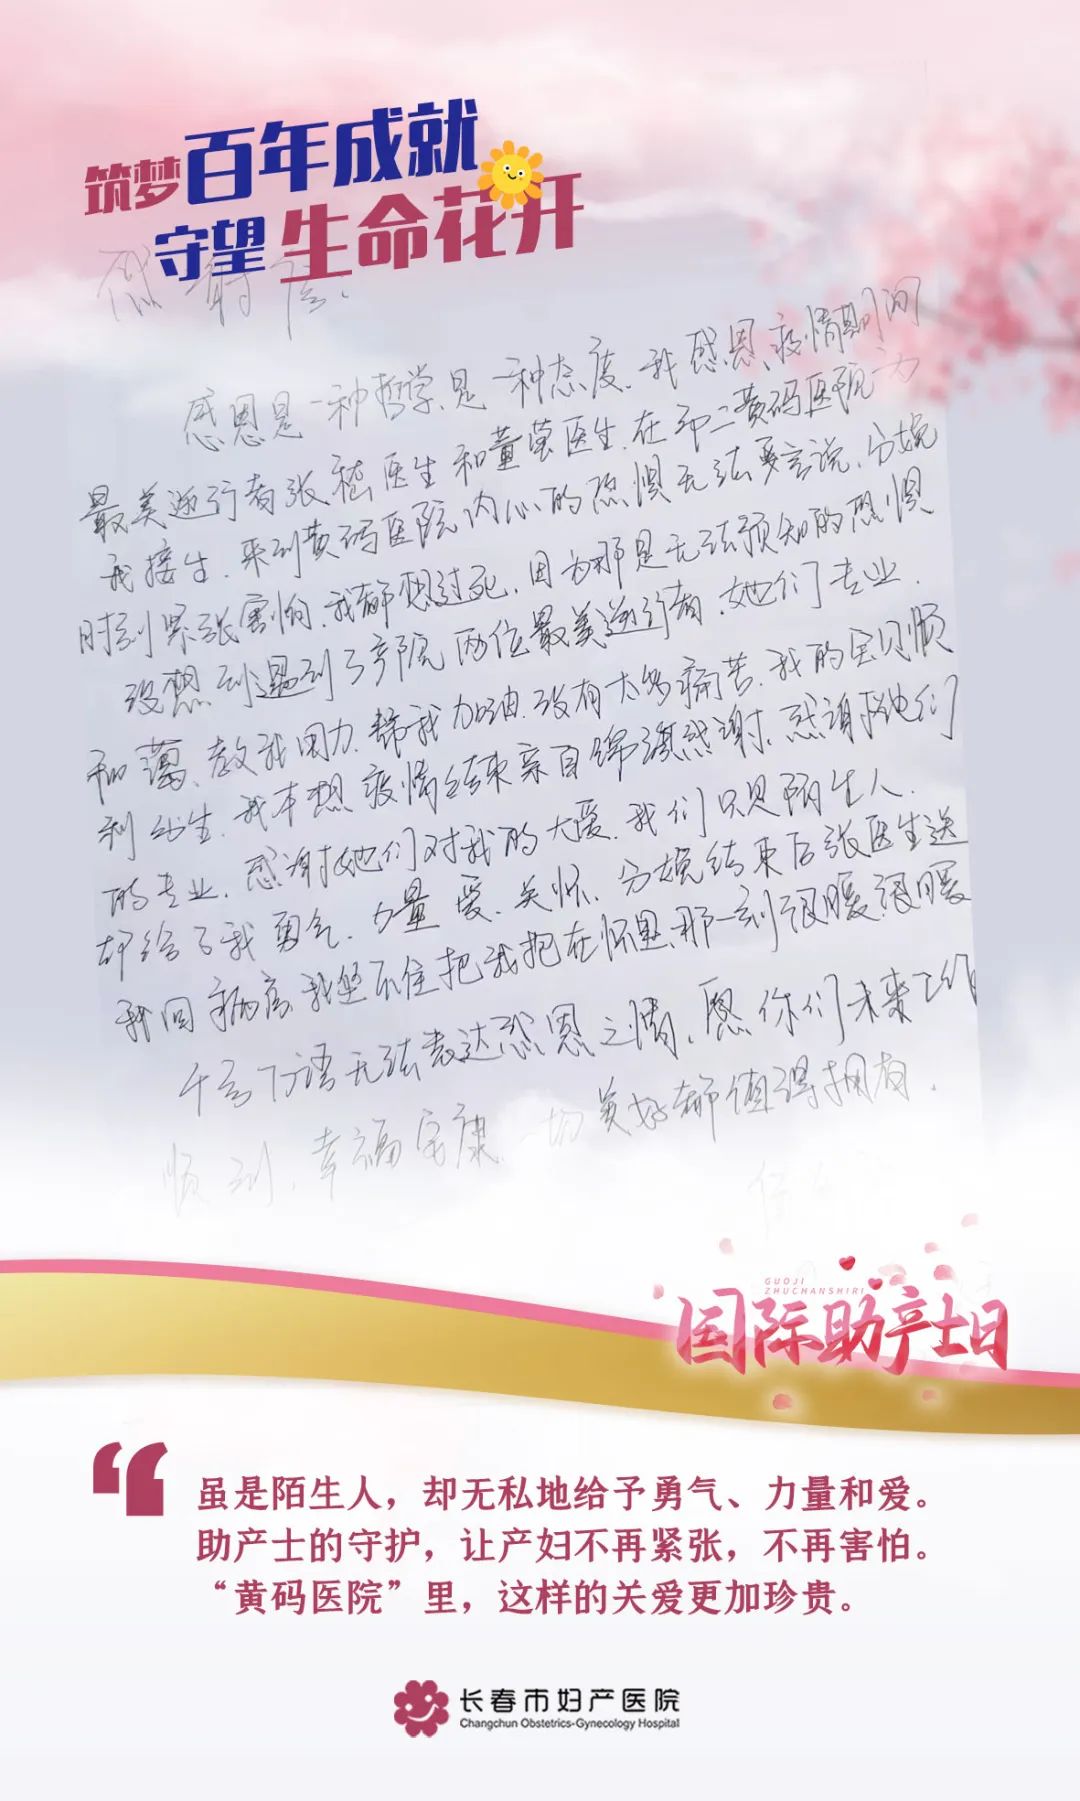 筑梦百年成就
守望生命花开
感谢信.
感恩是一种哲学.是一种态度.我感恩疫情期间
最美逆行者张 医生和董莹医生.在市二黄码医院为
我接生.来到黄码医院内心的恐惧无法 言说.分娩
时刻紧张害怕.我都想过死.因为那是无法预知的恐惧
没想到遇到了产院两位最美逆行者.她们专业.
和蔼.教我用力.帮我加油.没有太多痛苦.我的宝贝顺
利出生.我本想疫情结束亲自 感谢.感谢她们
的专业.感谢她们对我的大爱.我们只是陌生人.
却给了我勇气.力量.爱.关怀.分娩结束后张医生送
我回病房.我坚不住把我抱在怀里.那一刻很暖.很暖
千言万语无法表达感恩之情.愿你们未来工作
顺利.幸福安康.一切美好都值得拥有.
GUOJI
ZHUCHANSHIRI
国际助产士日
“
虽是陌生人，却无私地给予勇气、力量和爱。
助产士的守护，让产妇不再紧张，不再害怕。
“黄码医院”里，这样的关爱更加珍贵。
长春市妇产医院
Changchun Obstetrics-Gynecology Hospital